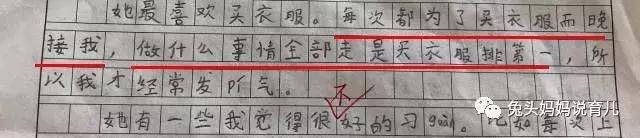 她最喜欢买衣服。每次都为了买衣服而晚
接我，做什么事情全部走是买衣服排第一，所
以我才经常发pí气。
不
她有一些我觉得很好的习guàn。比如每次上
兔头妈妈说育儿